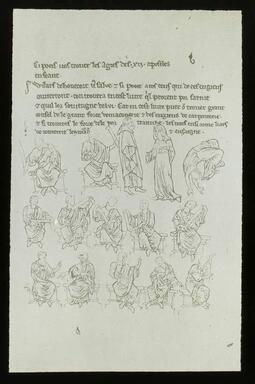 Ci poes vos trover les agies des .xii. apostles
en seant.
Wilars de honecort v' salue & si proie a tos ceus qui de ces engiens
ouverront con trovera en cest livre q'l proient por sarme
et quil lor soviengne de lui. Car en cest livre puet o trover grant
consel de le grant force de maconerie & des engiens de carpenterie.
& si troveres le force de le por traiture, les trais ensi come li ars
de iometrie le & ensaigne.